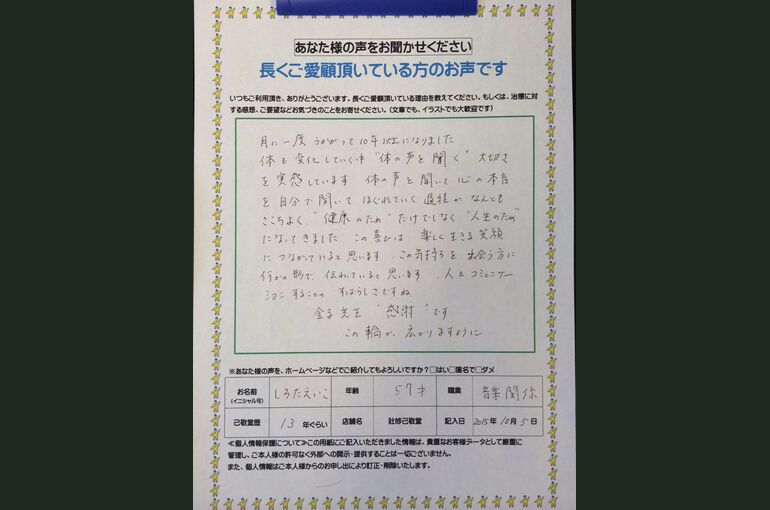 あなた様の声をお聞かせください
長くご愛顧頂いている方のお声です
いつもご利用頂き、ありがとうございます。長くご愛顧頂いている理由を教えてください。もしくは、治療に対
する感想、ご要望などお気づきのことをお寄せください。(文章でも、イラストでも大歓迎です)
月に一度 うかがって10年以上になりました
体も変化していく中"体の声を聞く"大切さ
を実感しています 体の声を聞いて心の本音
を自分で聞いて ほぐれていく過程が なんとも
ここちよく "健康のため"だけでなく "人生のため"
になってきました この喜びは 楽しく生きる笑顔
につながっていると思います. この気持ちを 出会う方に
何かの形で 伝わっていると思います. 人とコミュニケー
ションすることの すばらしさですね
金子先生 "感謝"です
この輪が、広がりますように
※あなた様の声を、ホームページなどでご紹介してもよろしいですか?□はい□匿名で□ダメ
お名前 しろたえいこ 年齢 57才 職業 音楽関係
(イニシャル可)
己敬堂歴 13年ぐらい 店舗名 壮妙己敬堂 記入日 2015年10月5日
≪個人情報保護について≫この用紙にご記入いただきました情報は、貴重なお客様データとして厳重に
管理し、ご本人様の許可なく外部への開示・提供することは一切ございません。
また、個人情報はご本人様からのお申し出により訂正・削除いたします。